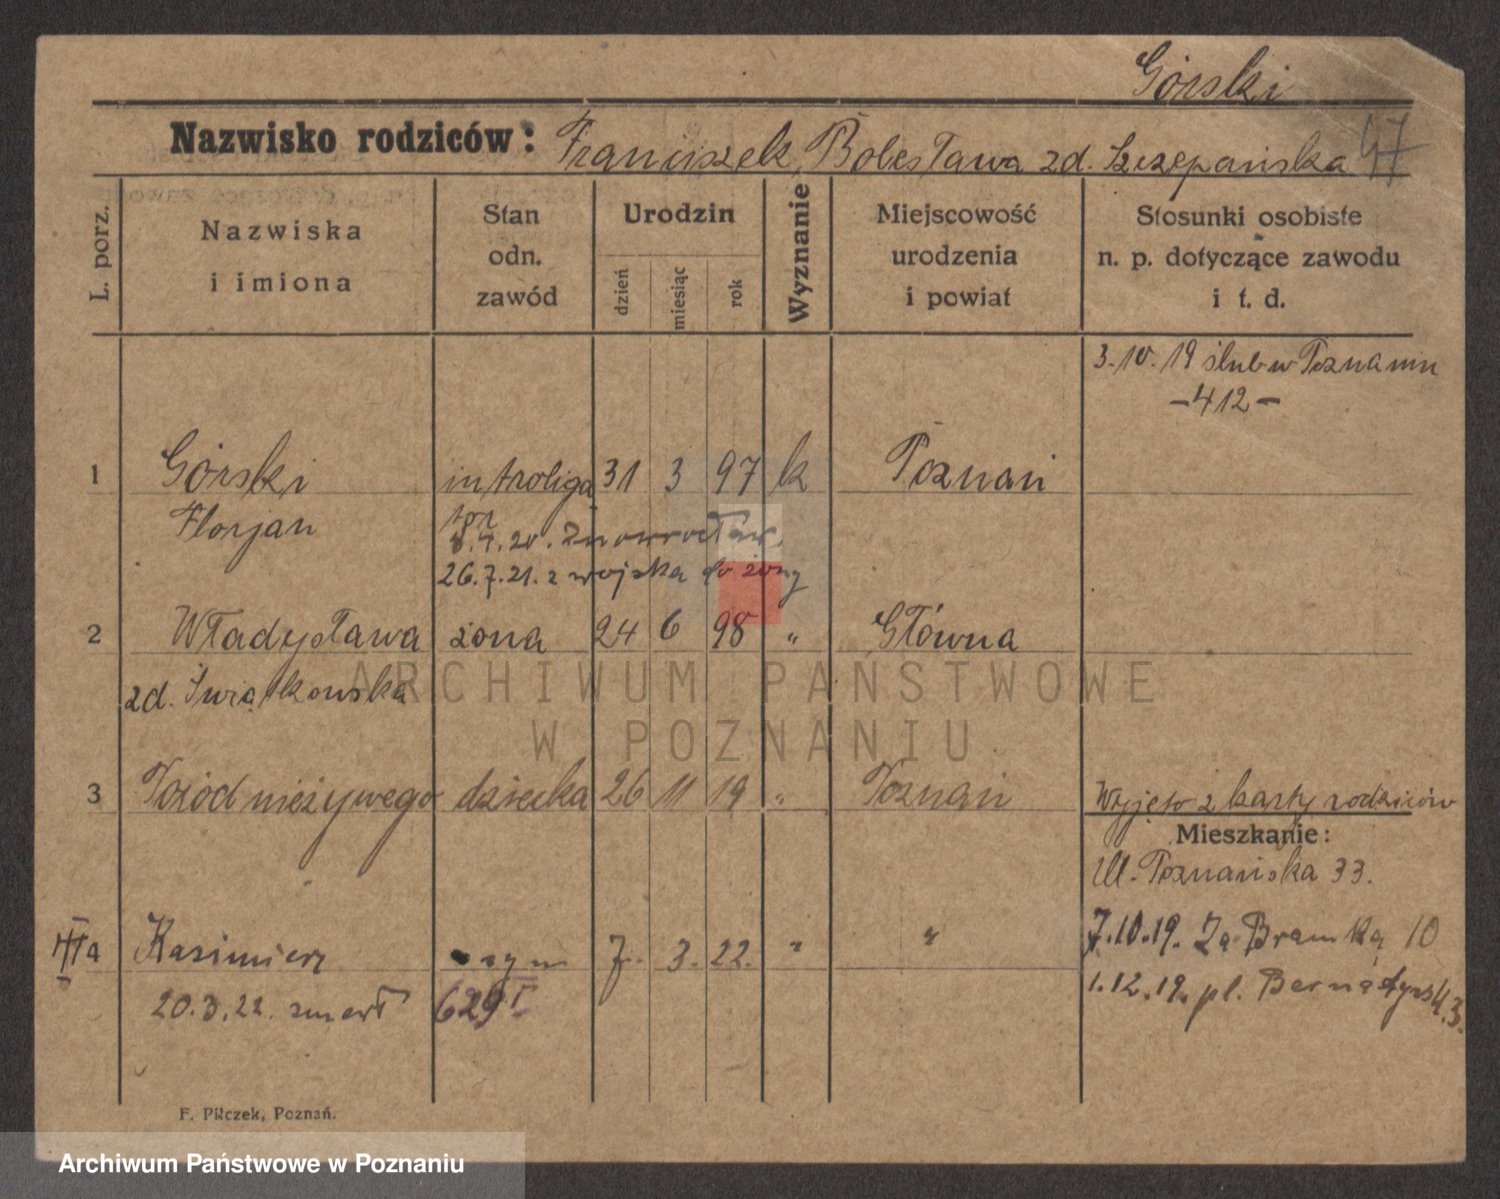 Górski
Nazwisko rodziców: Franciszek, Bolesława zd. Szczepańska 47
L. porz.
Nazwiska
i imiona
Stan
odn.
zawód
Urodzin
dzień
miesiąc
rok
Wyznanie
Miejscowość
urodzenia
i powiat
Stosunki osobiste
n. p. dotyczące zawodu
i t. d.
3.10.19 ślub w Poznaniu
-412-
1 Górski introliga 31 3 97 k Poznań
Florjan tor
8.4.20. Inowrocław,
26.7.21. z wojska do żony
2 Władysława żona 24 6 98 " Główna
zd. Świątkowska
3 Poród nieżywego dziecka 26 11 19 " Poznań Wyjęto z karty rodziców
Mieszkanie:
Ul. Poznańska 33.
4 Kasimierz syn 7. 3. 22. " " 7.10.19. Za Bramką 10
20.3.22. zmarł 629 I 1.12.19. pl. Bernadyński 3.
F. Pilczek, Poznań.
ARCHIWUM PAŃSTWOWE
W POZNANIU
Archiwum Państwowe w Poznaniu